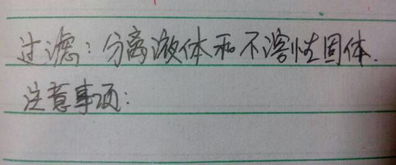 过滤：分离液体和不溶性固体.
注意事项：